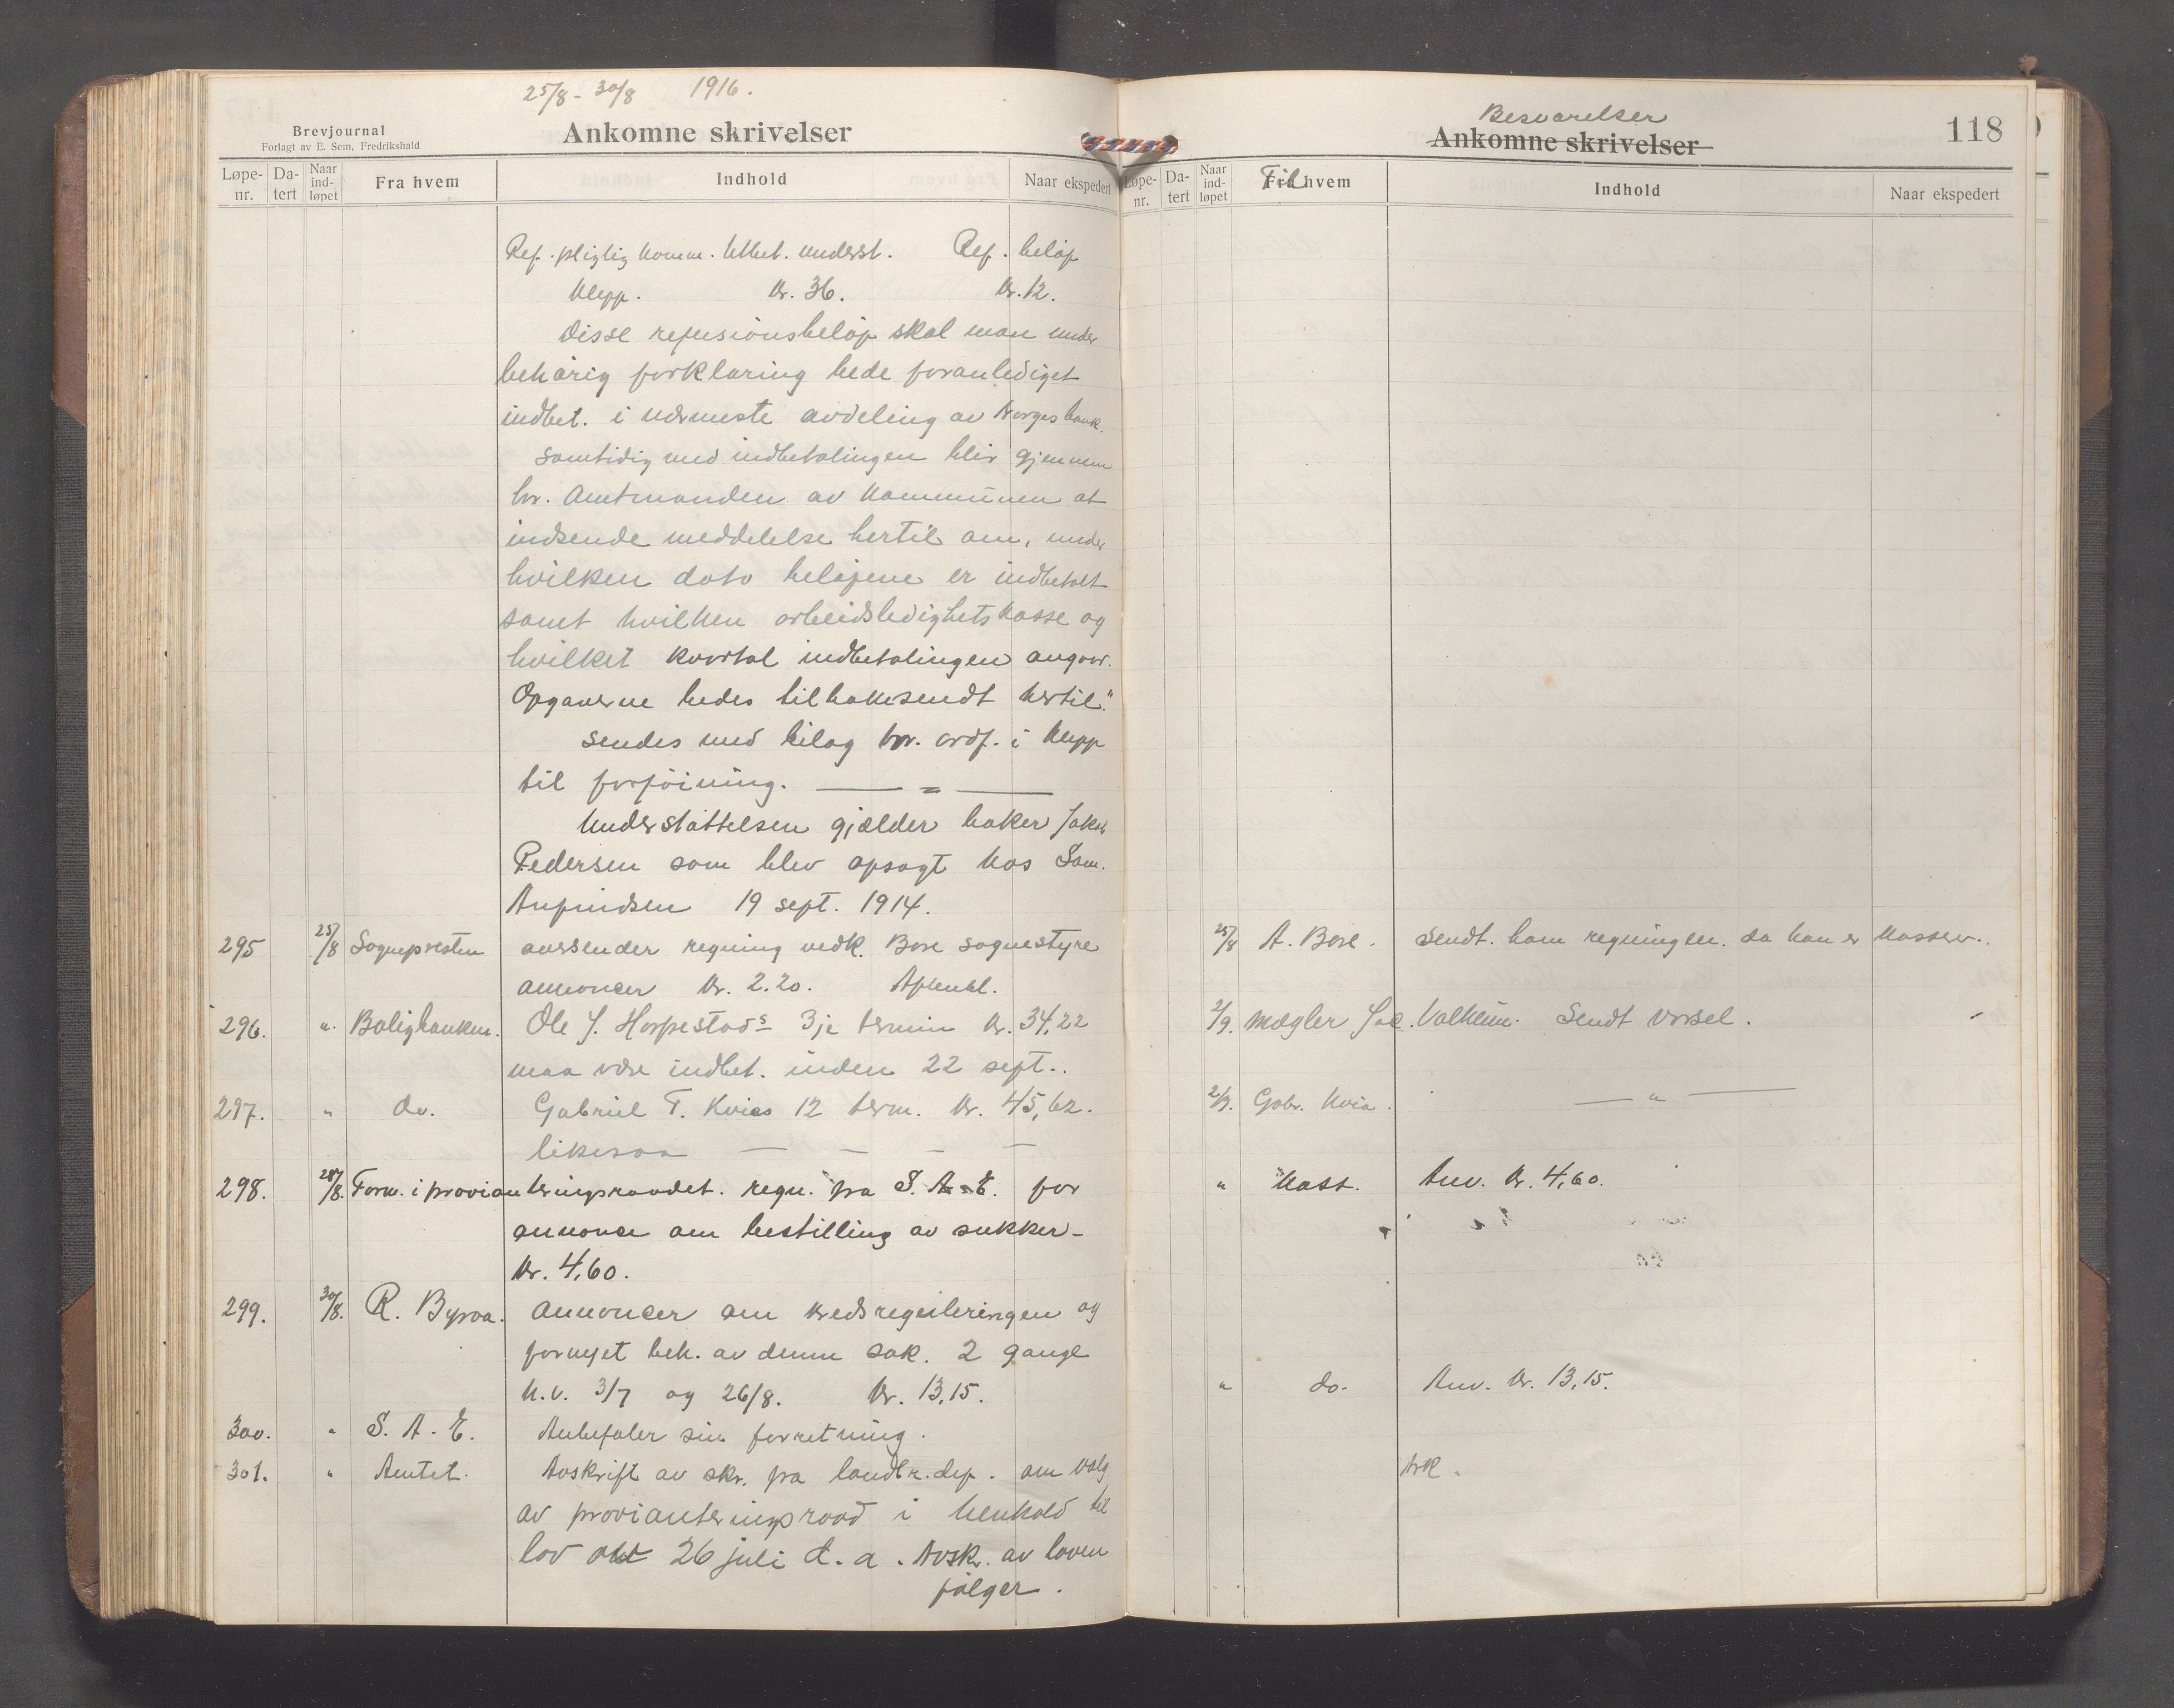 25/8 - 30/8 1916.
Brevjournal
Forlagt av E. Sem, Fredrikshald
Ankomne skrivelser
Løpe-nr. Da-tert Naar ind-løpet Fra hvem Indhold Naar ekspedert
Ref. pligtig komm. Utbet. underst. Ref. beløp
Klepp. Kr. 36. Kr. 12.
Disse refusionsbeløp skal man under
behørig forklaring bede foranlediget
indbet. i nærmeste avdeling av Norges bank.
Samtidig med indbetalingen blir gjennem
hr. Amtmanden av kommunen at
indsende meddelelse hertil om, under
hvilken dato beløpene er indbetalt
samt hvilken arbeidsledighetskasse og
hvilket kvartal indbetalingen angaar.
Opgaverne bedes tilbakesendt hertil."
Sendes med bilag hr. ordf. i Klepp
til forføining. — " —
Understøttelsen gjælder baker Jakob
Pedersen som blev opsagt hos Sam.
Anfindsen 19 sept. 1914.
295 25/8 Sognepresten oversender regning vedk. Bore sognestyre
annoncer Kr. 2.20. Aftenbl.
296. " Boligbanken. Ole J. Horpestads 3je termin Kr. 34,22
maa være indbet. inden 22 sept..
297. " do. Gabriel T. Kvias 12 term. Kr. 45,62.
likesaa — — — —
298. 28/8. Form. i provianteringsraadet. regn. fra S. A. E. for
annonce om bestilling av sukker -
Kr. 4,60.
299. 30/8. R. Byroa. Annoncer om kredsreguleringen og
fornyet beh. av denne sak. 2 gange
h.v. 3/7 og 26/8. Kr. 13,15.
300. " S. A. E. Anbefaler sin forretning.
301. " Amtet. Avskrift av skr. fra landbr. dep. om valg
av provianteringsraad i henhold til
lov av 26 juli d. a. Avskr. av loven
følger.
Besvarelser
Ankomne skrivelser
118
Løpe-nr. Da-tert Naar ind-løpet Til hvem Indhold Naar ekspedert
25/8 A. Bore. Sendt ham regningen da han er kasser..
2/9. Mægler Jac. Valheim. Sendt varsel.
2/9. Gabr. Kvia. — " —
" Kass. Anv. Kr. 4,60.
" do. Anv. Kr. 13,15.
Ark.